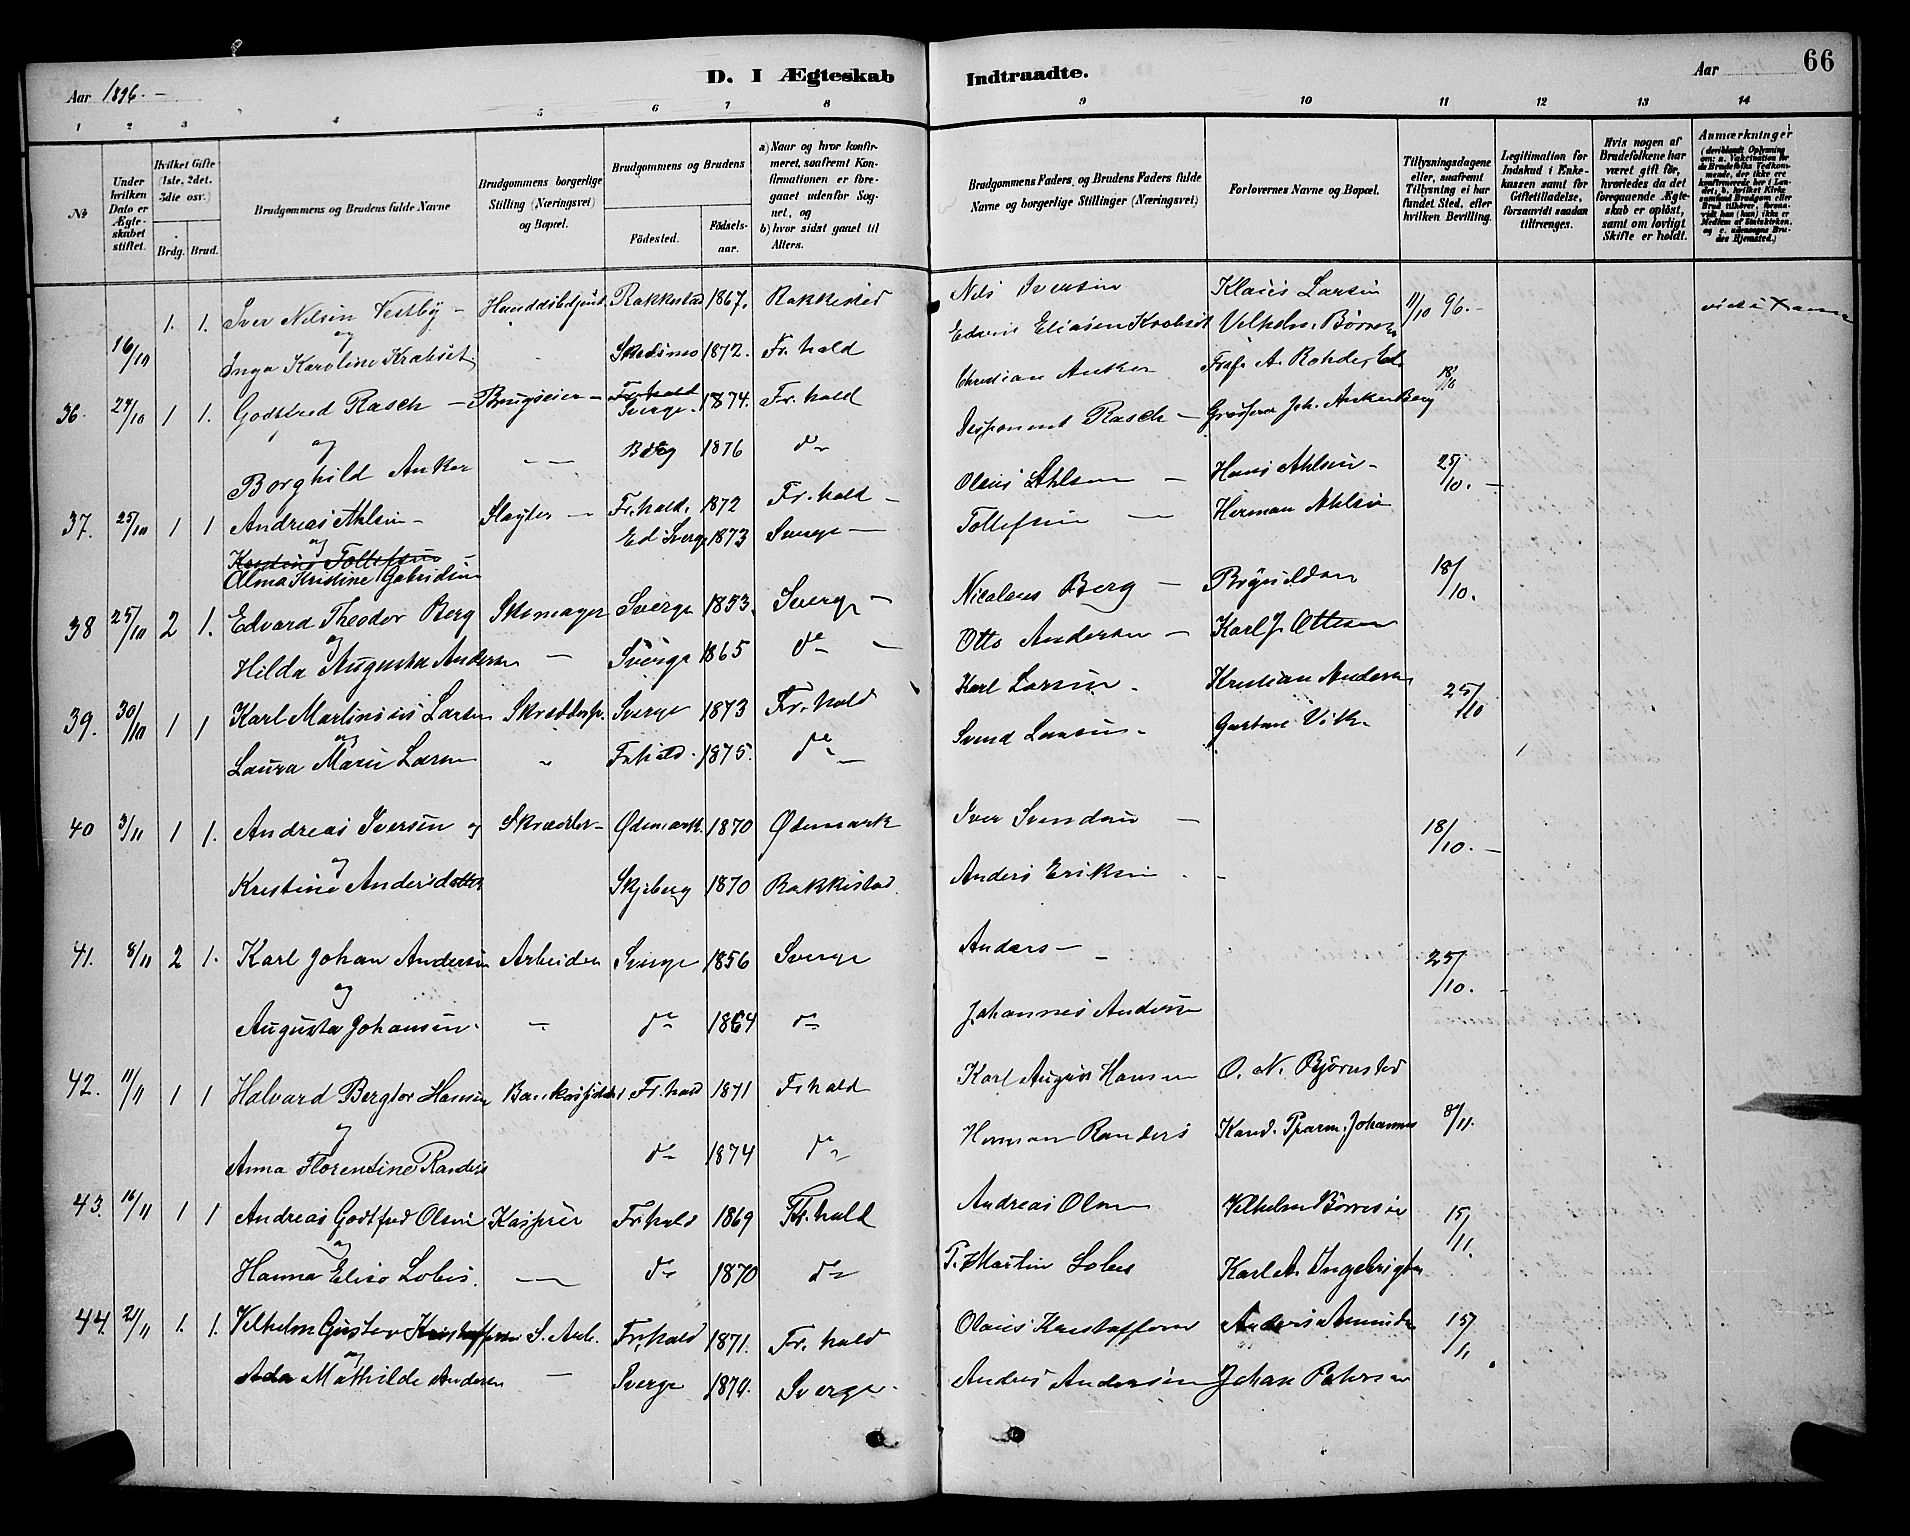 D. I Ægteskab Indtraadte.
66
Aar 1896.
Aar
1 2 3 4 5 6 7 8 9 10 11 12 13 14
№
Under hvilken Dato er Ægteskabet stiftet.
Hvilket Gifte (1ste, 2det, 3die osv.)
Brdg. Brud.
Brudgommens og Brudens fulde Navne
Brudgommens borgerlige Stilling (Næringsvei) og Bopæl.
Brudgommens og Brudens
Fødested.
Fødselsaar.
a) Naar og hvor konfirmeret, saafremt Konfirmationen er foregaaet udenfor Sognet, og
b) hvor sidst gaaet til Alters.
Brudgommens Faders og Brudens Faders fulde Navne og borgerlige Stillinger (Næringsvei)
Forlovernes Navne og Bopæl.
Tillysningsdagene eller, saafremt Tillysning ei har fundet Sted, efter hvilken Bevilling.
Legitimation for Indskud i Enkekassen samt for Giftetilladelse, forsaavidt saadan tiltrænges.
Hvis nogen af Brudefolkene har været gift før, hvorledes da det foregaaende Ægteskab er opløst, samt om lovligt Skifte er holdt.
Anmærkninger (deriblandt Oplysning om: a. Vakcination for de Brudefolks Vedkommende, der ikke ere konfirmerede her i Landet, b. hvilket Kirkesamfund Brudgom eller Brud tilhører, forsaavidt han (hun) ikke er Medlem af Statskirken, og c. udensogns Brudes Hjemsted.)
16/10 1. 1. Iver Nilsen Vestby – Rakkestad 1867. Rakkestad Nils Iversen Klaus Larsen 11/10 96. –
og
Inga Karoline Krabset Skedsmo 1872. Fr. hald Edvin Eliasen Krabset Vilhelm Børresen
36. 24/10 1 1. Godtfred Rasch – Brugseier – Fr. hald Sverge. 1874. Fr. hald Christian Anker 18/10
og
Borghild Anker – – Berg 1876 do Disponent Rasch – Grosserer Joh. Anker Berg
37. 25/10 1 1 Andreas Ahlsen – Slagter – Fr. hald. 1872 Fr. hald – Olaus Ahlsen – Hans Ahlsen – 25/10. –
og
Tollefsen
Alma Kristine Gabrielsen Ed i Sverge 1873 Sverge – Tollefsen – Herman Ahlsen
38 25/10 2 1. Edvard Theodor Berg Skomager Sverge 1853. Sverge – Nicolaus Berg – 18/10.
og
Hilda Augusta Andersen – Sverge 1865 do – Otto Andersen – Karl J. Ottesen
39. 30/10 1 1 Karl Martinius Larsen Sverge 1873 Fr. hald Karl Larsen – Kristian Andersen 25/10
og
Laura Marie Larsen " Fr. hald. 1875. do – Svend Larsen – Gustav Vik.
40 3/11 1 1. Andreas Iversen og Skrædder – Ødemark. 1870 Ødemark Iver Svendsen – 18/10. –
og
Kristine Andersdatter Skjeberg 1870 Rakkestad. Anders Eriksen –
41. 8/11 2 1. Karl Johan Andersen Arbeider Sverge 1856 Sverge Anders – 25/10. –
og
Augusta Johansen. – do 1864 do Johannes Andersen
42. 11/11 1 1 Halvard Bergtor Hansen Fr. hald 1871 Fr. hald Karl August Hansen O. N. Bjørnstad 8/11.
og
Anna Florentine Randers do 1874 do Herman Randers
43. 16/11 1 1 Andreas Godtfred Olsen Fr. hald 1869 Fr. hald Andreas Olsen Vilhelm Børresen 15/11.
og
Hanna Elise Lobes. – do 1870 do P. Martin Lobes Karl A. Ingebrigtsen
44. 21/11 1. 1. Vilhelm Gustav Kristoffersen S. Arb. Fr. hald 1871. Fr. hald Olaus Kristoffersen Anders Amundsen 15/11
og
Ada Mathilde Andersen – Sverge 1870. Sverge. Andres Andersen Johan Petersen